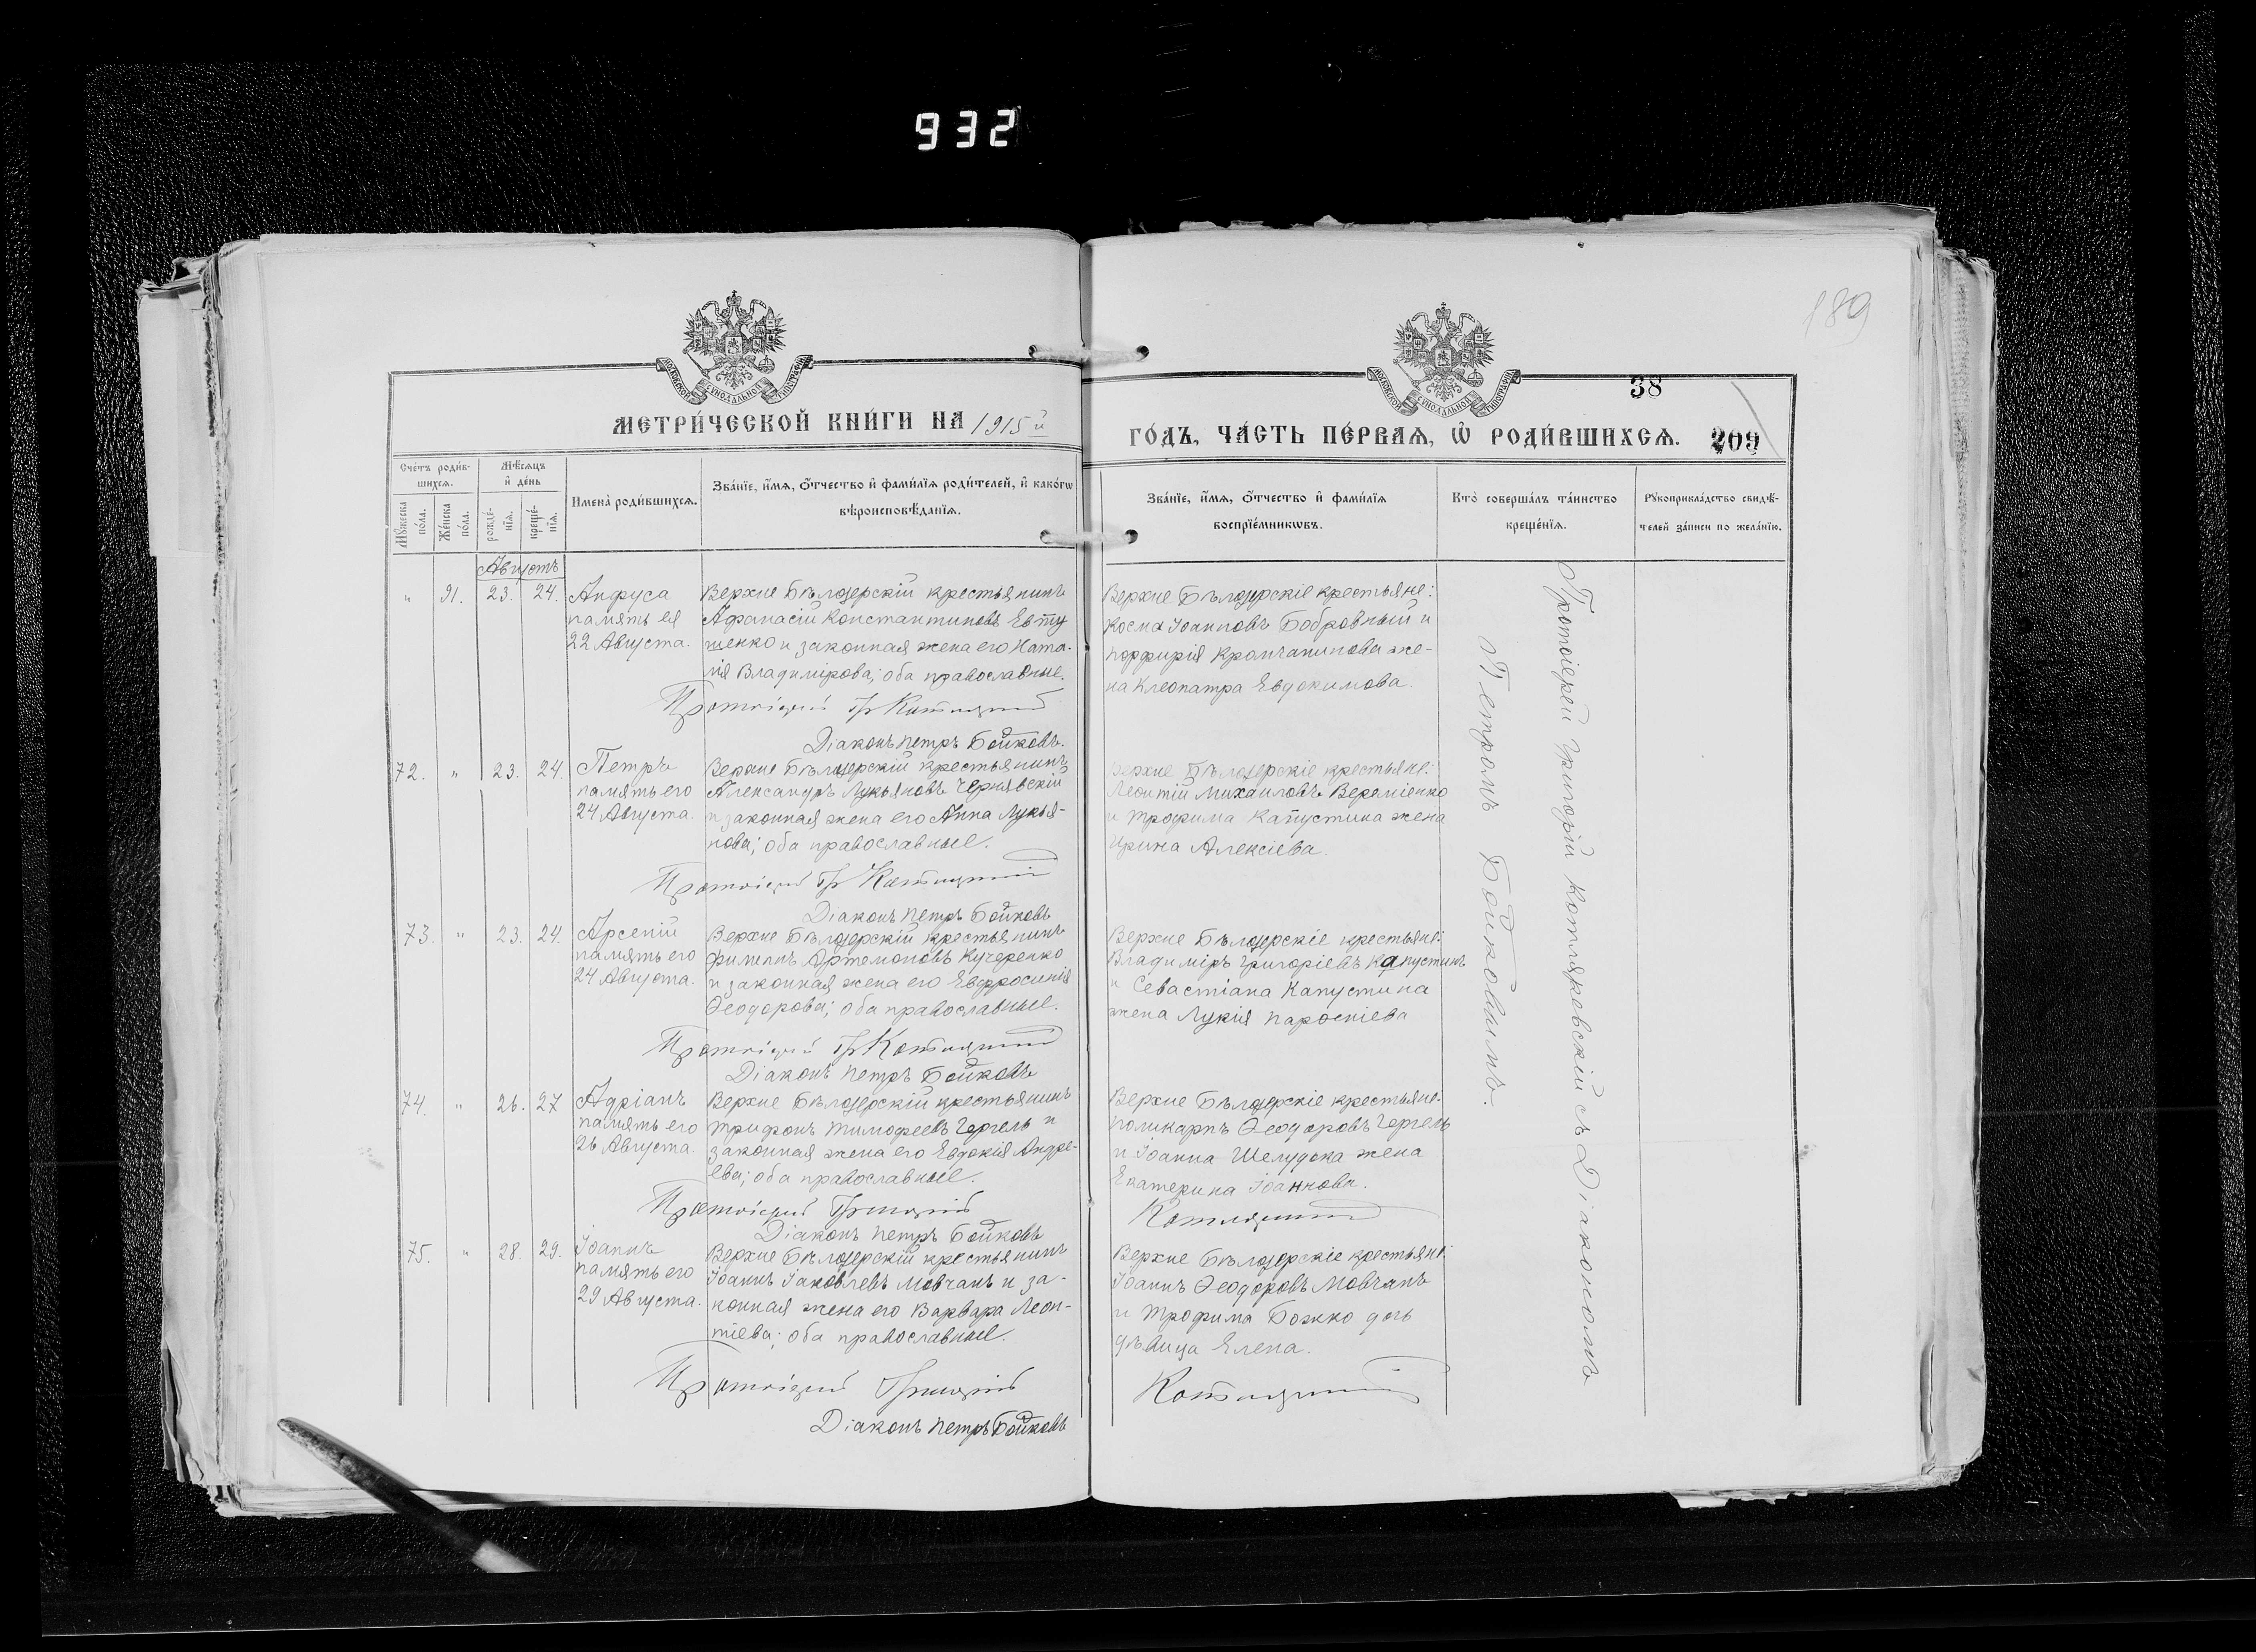 932
189
38
209
МОСКОВСКОЙ СѴНОДАЛЬНОЙ ТИПОГРАФІИ
МОСКОВСКОЙ СѴНОДАЛЬНОЙ ТИПОГРАФІИ
МЕТРИ́ЧЕСКОЙ КНИ́ГИ НА 1915й
ГО́ДЪ, ЧА́СТЬ ПЕ́РВАѦ, Ѡ҆ РОДИ́ВШИХСѦ.
Сче́тъ роди́в-
шихсѧ.
Мꙋ́жеска
по́ла.
Же́нска
по́ла.
Мѣ́сѧцъ
и҆ де́нь
рожде́-
нїѧ.
креще́-
нїѧ.
И҆мена̀ роди́вшихсѧ.
Зва́нїе, и҆́мѧ, ѻ҆́тчество и҆ фами́лїѧ роди́телей, и҆ како́гѡ
вѣроисповѣ́данїѧ.
Зва́нїе, и҆́мѧ, ѻ҆́тчество и҆ фами́лїѧ
воспрїе́мникѡвъ.
Кто̀ соверша́лъ та́инство
креще́нїѧ.
Рꙋкоприкла́дство свидѣ́-
телей за́писи по жела́нїю.
Августъ
" 91. 23. 24. Анфуса
память ея
22 Августа.
Верхне Бѣлозерскій крестьянинъ
Афанасій Константиновъ Евту
шенко и законная жена его Ната-
лія Владимірова; оба православные.
Протоіерей Гр Котляревскій
Діаконъ Петръ Бойковъ.
Верхне Бѣлозерскіе крестьяне:
Косма Іоанновъ Бобровный и
Порфирія жe-
на Клеопатра Евдокимова.
72. " 23. 24. Петръ
память его
24 Августа.
Верхне Бѣлозерскій крестьянинъ
Александръ Лукьяновъ Чернявскій
и законная жена его Анна Лукья-
нова; оба православные.
Протоіерей Гр Котляревскій
Діаконъ Петръ Бойковъ
Верхне Бѣлозерскіе крестьяне:
Леонтій Михаиловъ Вереміенко
и Трофима Капустина жена
Ирина Алексіева.
73. " 23. 24. Арсеній
память его
24 Августа.
Верхне Бѣлозерскій крестьянинъ
Филиппъ Артемоновъ Кучеренко
и законная жена его Евфросинія
Ѳеодорова; оба православные.
Протоіерей Гр Котляревскій
Діаконъ Петръ Бойковъ
Верхне Бѣлозерскіе крестьяне:
Владиміръ Григоріевъ Капустинъ
и Севастіана Капустина
жена Лукія
74. " 26. 27 Адріанъ
память его
26 Августа.
Верхне Бѣлозерскій крестьянинъ
Трифонъ Тимофеевъ Гергель и
законная жена его Евдокія Андре-
ева; оба православные.
Протоіерей Григорій
Діаконъ Петръ Бойковъ
Верхне Бѣлозерскіе крестьяне:
Поликарпъ Ѳеодоровъ Гергель
и Іоанна Шелудока жена
Екатерина Іоаннова.
Котляревскій
75. " 28. 29. Іоаннъ
память его
29 Августа.
Верхне Бѣлозерскій крестьянинъ
Іоаннъ Іаковлевъ Мовчанъ и за-
конная жена его Варвара Леон-
тіева; оба православные.
Протоіерей Григорій
Діаконъ Петръ Бойковъ
Верхне Бѣлозерскіе крестьяне:
Іоаннъ Ѳеодоровъ Мовчанъ
и Трофима Божко дочь
дѣвица Елена.
Котляревскій
Протоіерей Григорій Котляревскій съ Діакономъ
Петромъ Бойковымъ.